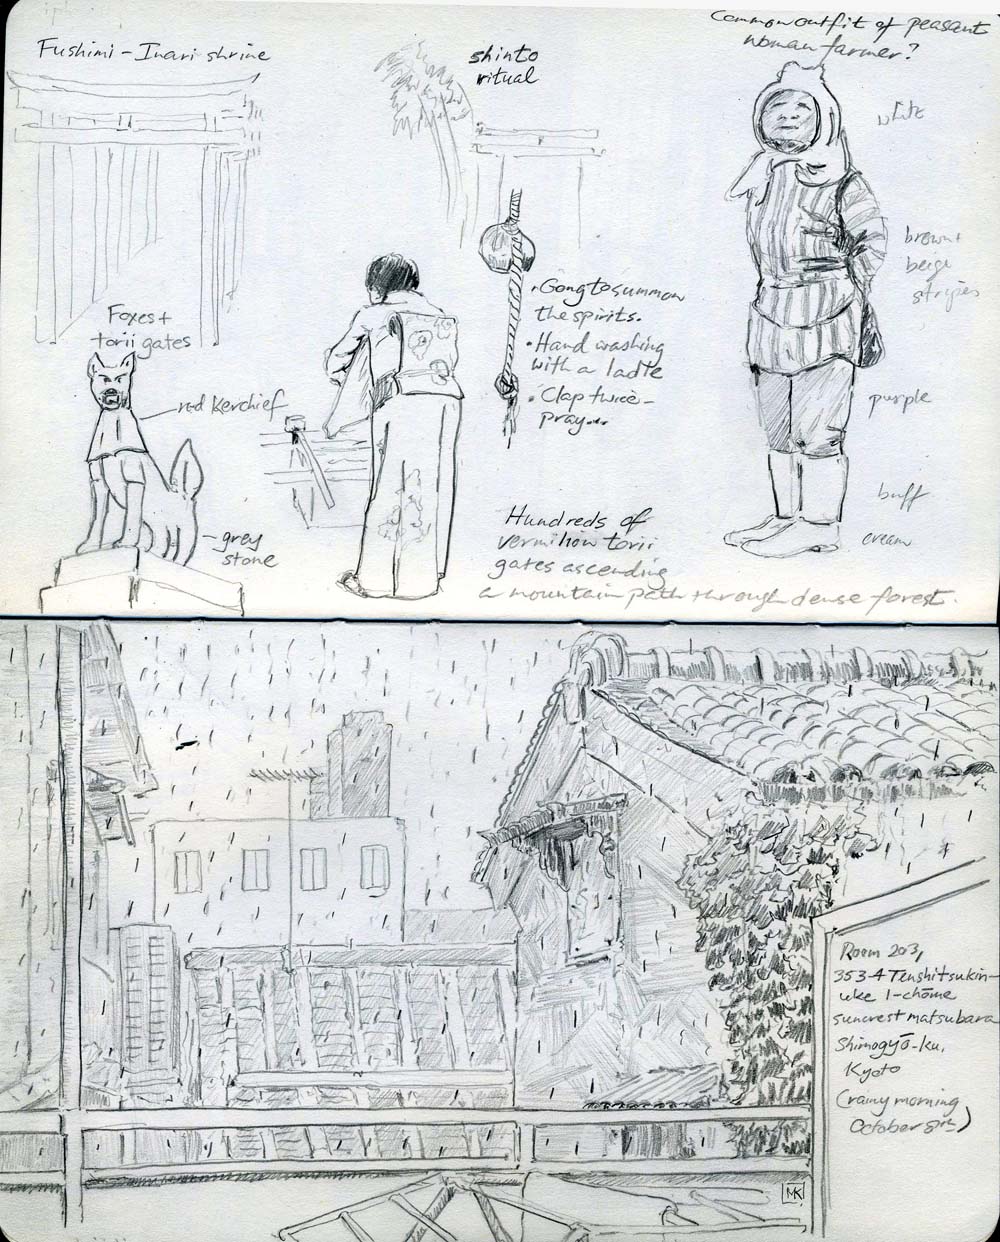 Fushimi - Inari shrine
shinto
ritual
Common outfit of peasant
woman farmer?
white
brown +
beige
stripes
purple
buff
cream
Foxes +
torii gates
red kerchief
grey
stone
• Gong to summon
the spirits.
• Hand washing
with a ladle
• Clap twice -
pray...
Hundreds of
vermilion torii
gates ascending
a mountain path through dense forest.
Room 203,
353-4 Tenshitsukin-
uke 1-chōme
suncrest matsubara
Shimogyō-ku,
Kyoto
(rainy morning
October 8th)
MK